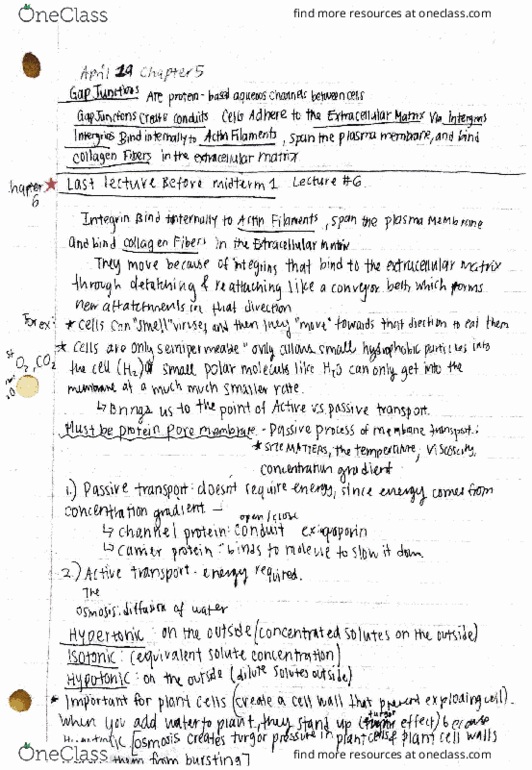 OneClass
find more resources at oneclass.com
April 19 Chapter 5
Gap Junctions Are protein-based aqueous channels between cells
Gap Junctions create conduits Cells Adhere to the Extracellular Matrix Via Integrins
Integrins Bind internally to Actin Filaments, span the plasma membrane, and bind
collagen Fibers in the extracellular matrix
chapter 6 ★ Last lecture Before midterm 1 Lecture #6
Integrin Bind internally to Actin Filaments, span the plasma Membrane
and bind collagen Fibers in the Extracellular Matrix
They move because of integrins that bind to the extracellular matrix
through detatching & reattaching like a conveyor belt, which forms
new attatchments in that direction
For ex: ★ Cells can "smell" viruses and then they "move" towards that direction to eat them
★ Cells are only semipermeable" only allows small hydrophobic particles into
O2, CO2
the cell (H2) or small polar molecules like H2O can only get into the
membrane at a much much smaller rate.
↳ Brings us to the point of Active vs. passive transport.
Must be protein pore membrane - Passive process of membrane transport:
★ SIZE MATTERS, the temperature, viscosity,
concentration gradient
1.) Passive transport: doesn't require energy, since energy comes from
concentration gradient —
open/close
↳ channel protein: conduit ex:
↳ carrier protein: binds to molecule to slow it down.
2.) Active transport - energy required.
The
osmosis: diffusion of water
Hypertonic: on the outside (concentrated solutes on the outside)
Isotonic: (equivalent solute concentration)
Hypotonic: on the outside (dilute solutes outside)
★ Important for plant cells (create a cell wall that prevent exploding cell).
When you add water to plant, they stand up (turgor effect) because
[osmosis creates turgor pressure in plant cells & plant cell walls
them from bursting]
OneClass
find more resources at oneclass.com